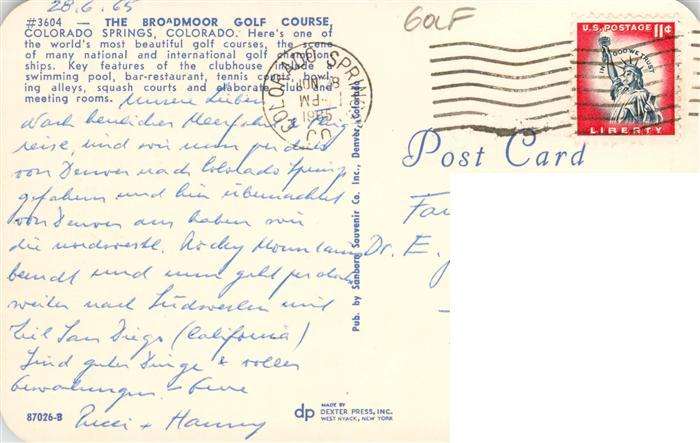 28.6.65
#3604 — THE BROADMOOR GOLF COURSE,
COLORADO SPRINGS, COLORADO. Here's one of
the world's most beautiful golf courses, the scene
of many national and international golf champion-
ships. Key features of the clubhouse include a
swimming pool, bar-restaurant, tennis courts, bowl-
ing alleys, squash courts and elaborate club and
meeting rooms.
Unsere Lieben
Nach herrlicher &
reise, sind wir nun per
von Denver nach Colorado Springs
gefahren und hier übernachtet
von Denver aus haben wir
die nordwestl. Rocky Mountains
und nun geht per
weiter nach Südwesten mit
Ziel San Diego (California)
Sind guter Dinge & voller
+ Hanny
87026-B
Pub. by Sanborn Souvenir Co. Inc., Denver, Colorado
dp
MADE BY
DEXTER PRESS, INC.
WEST NYACK, NEW YORK
GOLF
COLORADO SPRINGS
PM
U.S. POSTAGE 11¢
IN GOD WE TRUST
LIBERTY
Post Card
Fa
Dr. E.